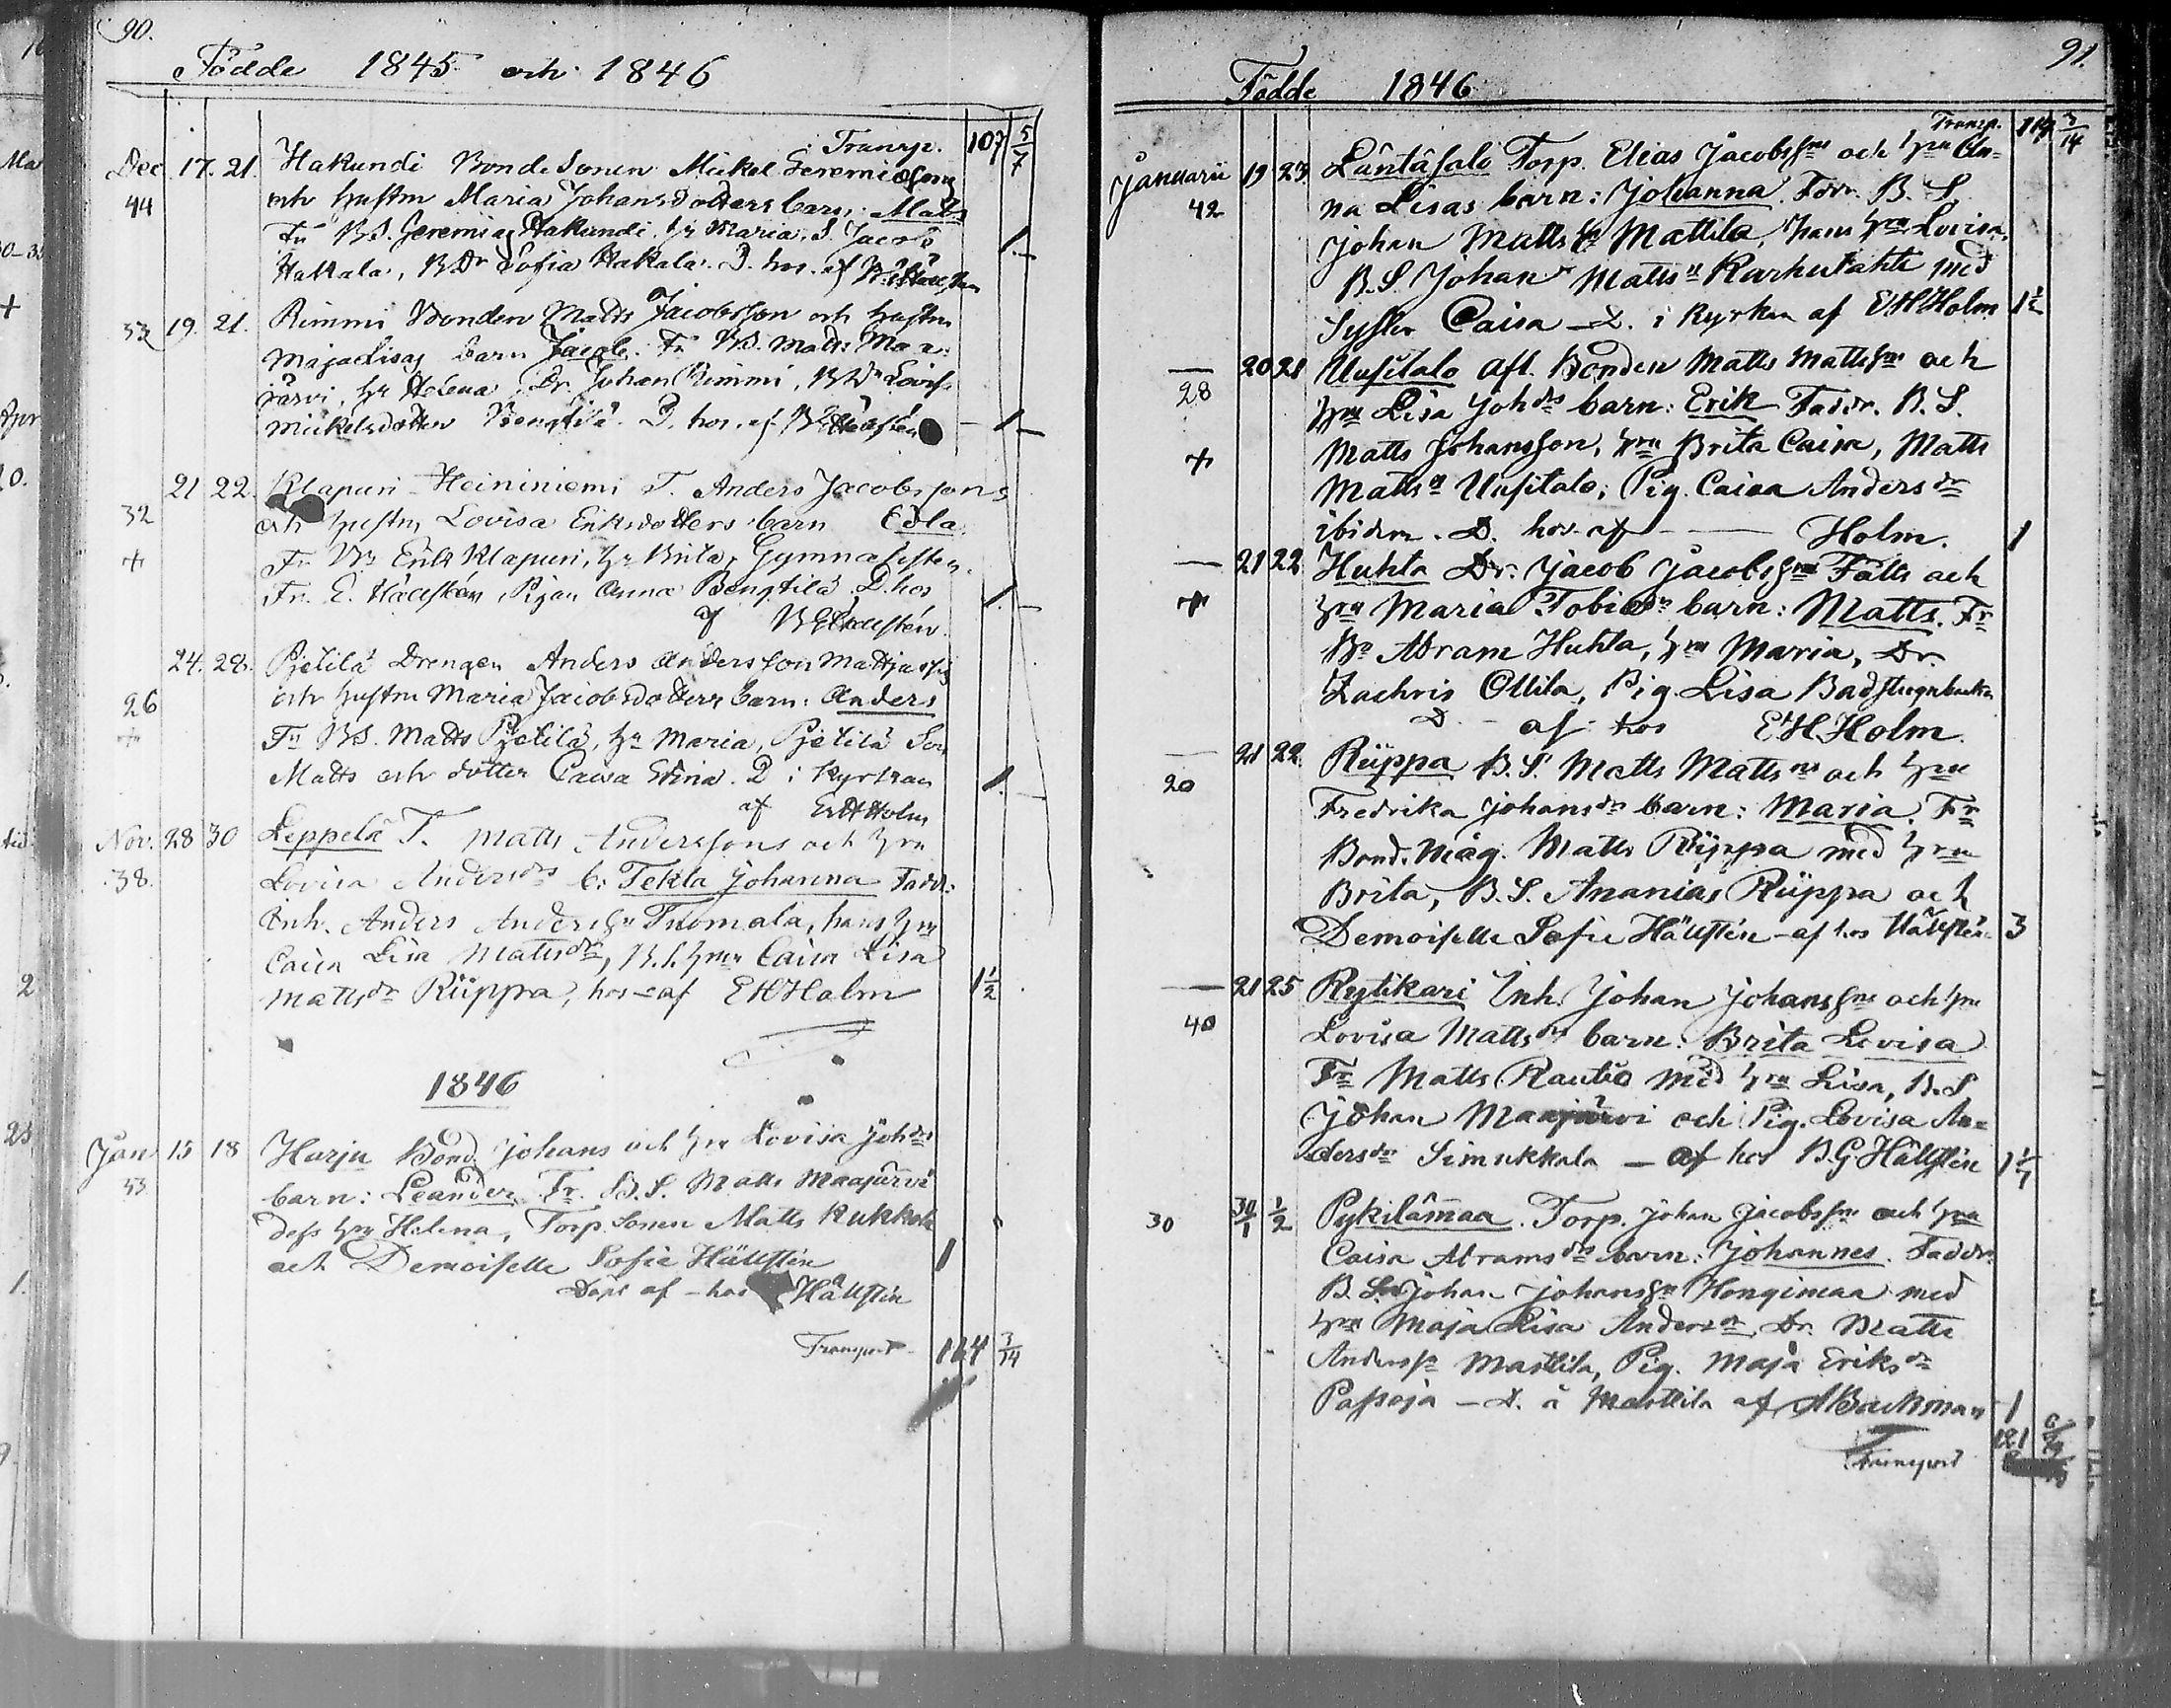 90.
Födde 1845 och 1846
Transp. 107 5/7
Dec 17. 21. Hakundi Bonde Sonen Mickel Jeremiæsons
44 och hustrus Maria Johansdotters barn: Matts
Fr BS. Jeremias Hakundi, hu Maria, S. Jacob 1.
Hakala, BDr Sofia Hakala. D. hos. af
33 19. 21. Rimmi Bonden Matts Jacobsson och hustrus
Maja Lisas barn Jacob. Fr BS. Matts Maa=
järvi, hu Helena, Dr. Johan Rimmi, BDr Lovisa
Mickelsdotter Bengtilä. D. hos. af 1.
21 22. Klapuri Heininiemi T. Anders Jacobssons
32 och hustrus Lovisa Eriksdotters barn Edla
+ Fr Bn Erik Klapuri, hu Brita, Gymnasisten
Fr. E. Hällstén, Pigan Anna Bengtilä. D. hos 1.
af BGHällstén
24. 28. Pjetilä Drengen Anders Andersson
26 och hustrus Maria Jacobsdotters barn: Anders
+ Fr BS. Matts Pjetilä, hu Maria, Pjetilä Son
Matts och dotter Caisa Stina. D. i Kyrkan 1.
af EHHolm
Nov. 28 30 Leppelä T. Matts Anderssons och hrus
38. Lovisa Andersdrs b: Tekla Johanna Faddr:
Inh. Anders Anderssn Tuomala, hans hru
Caisa Lisa Mattsdr, B.S. hru Caisa Lisa
Mattsdr Riippa, hos - af EHHolm 1 1/2
1846
Jan 15 18 Harju Bond. Johans och hru Lovisa Johdrs
33 barn: Leander Fr. B.S. Matts Maajärvi
dess hru Helena, Torp. Sonen Matts Kukkola
och Demoiselle Sofie Hällstén 1
Döpt af - hos Hällstén
Transport 114 3/14
91.
Födde 1846
Transp. 114 3/14
Januarii 19 23. Läntäsalo Torp. Elias Jacobssns och hru An=
42 na Lisas barn: Johanna. Fadr. B. S.
Johan Matts sn Mattila, hans hru Lovisa,
B.S. Johan Mattssn Karhulahti med
Syster Caisa — D. i Kyrkan af EHHolm 1 1/2
— 20 21 Uusitalo aft. Bonden Matts Mattssns och
28 hru Lisa Johdrs barn: Erik Faddr. B. S.
Matts Johansson, hru Brita Caisa, Matts
+ Mattssn Uusitalo; Pig. Caisa Andersdr
ibidem. D. hos af — Holm. 1
— 21 22 Huhta Dr. Jacob Jacobssns Fält och
+ hru Maria Tobiædr barn: Matts. Fr
Bn Abram Huhta, hru Maria, Dr.
Zachris Ollila, Pig. Lisa Badstugubacka
D. - af hos EHHolm.
— 21 22 Riippa B. S. Matts Mattssns och hru
20 Fredrika Johansdrs barn: Maria. Fr
Bond. Måg. Matts Riippa med hru
Brita, B. S. Ananias Riippa och
Demoiselle Sofie Hällstén - af hos Hällstén 3
— 21 25 Rytikari Inh. Johan Johanssns och hru
40 Lovisa Mattsdrs barn: Brita Lovisa
Fr Matts Rautio med hru Lisa, B. S
Johan Maajärvi och Pig. Lovisa An=
dersdr Simukkala — af hos B.G Hällstén
30 30/1 1/2 Pykilämaa. Torp. Johan Jacobssns och hru
Caisa Abramsdrs barn: Johannes. Faddr.
B. Sn Johan Johanssn Hongimaa med
hru Maja Lisa Andersdr, Dr. Matts
Anderssn Mattila, Pig. Maja Eriksdr
Passoja — D. å Mattila af ABackman 1
Transport 121